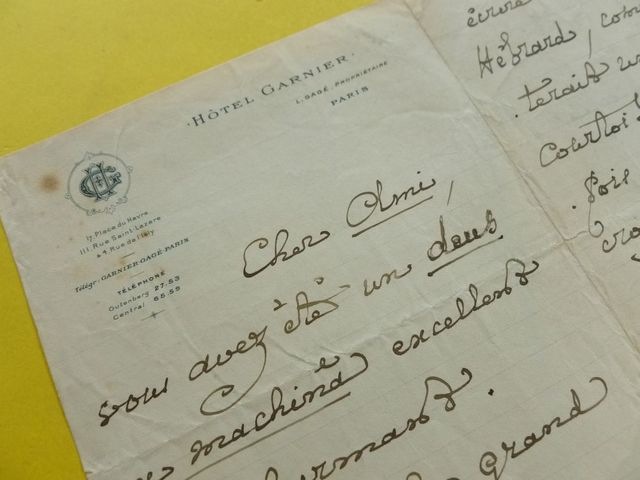 HÔTEL GARNIER
L. GAGÉ, PROPRIÉTAIRE
PARIS
17, Place du Havre
111, Rue Saint-Lazare
& 4, Rue de l'Isly
Télégr: GARNIER-GAGÉ-PARIS
TÉLÉPHONE
Gutenberg 27.53
Central 65.59
Cher Ami,
vous avez été un deus
ex machinâ excellent
charmant.
grand
écrire
Hébrard, com
terait un
courtois
fois
cro